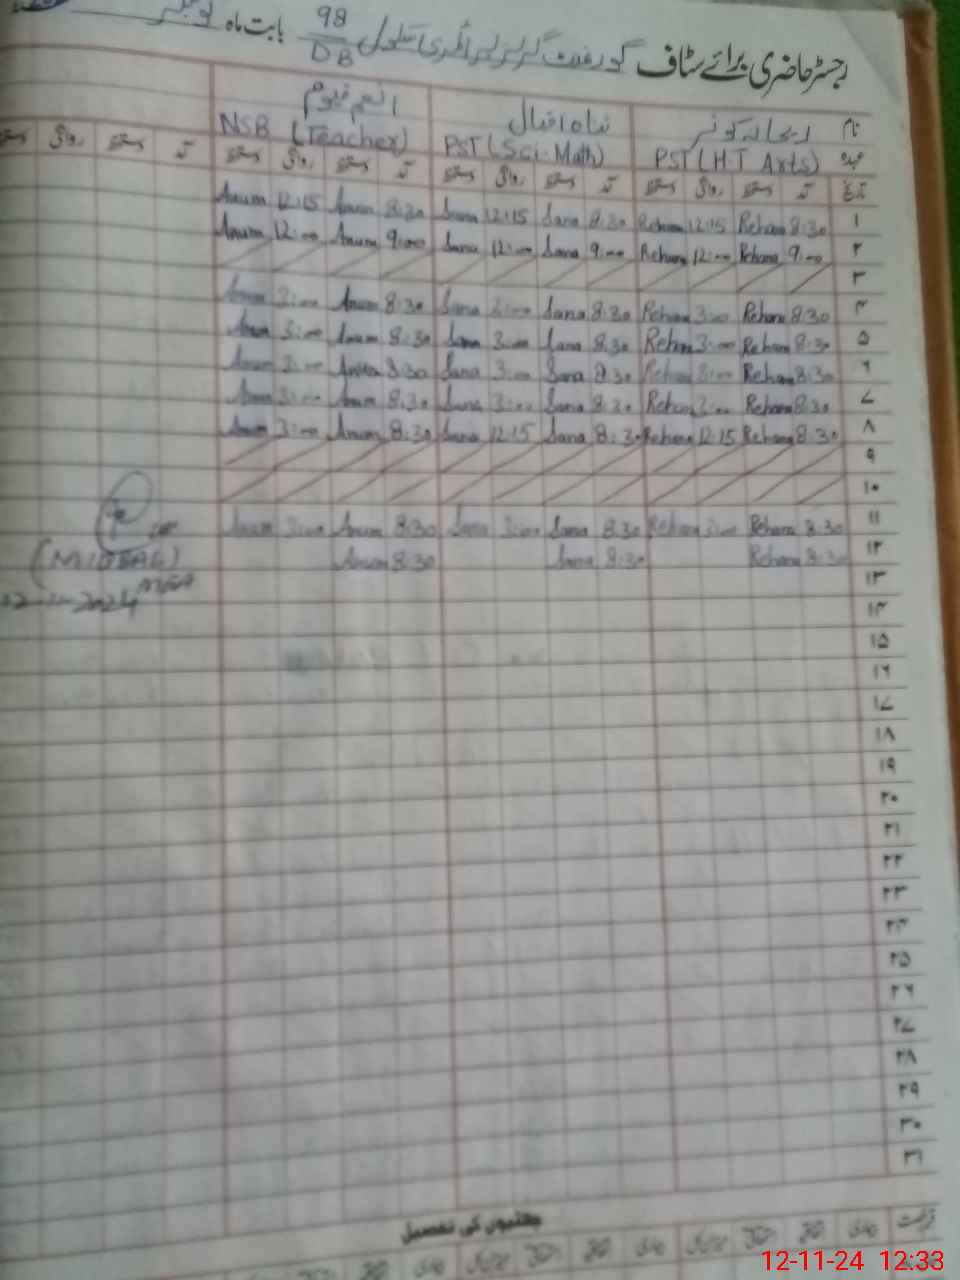 رجسٹر حاضری برائے سٹاف گورنمنٹ گرلز پرائمری سکول 98/DB بابت ماہ نومبر
نام ریحانہ کوثر ثناء اقبال انعم قیوم
عہدہ PST (H.T Arts) PST (Sci-Math) NSB (Teacher)
تاریخ آمد دستخط روانگی دستخط آمد دستخط روانگی دستخط آمد دستخط روانگی دستخط آمد دستخط روانگی دستخط
۱ 8:30 Rehana 12:15 Rehana 8:30 Sana 12:15 Sana 8:30 Anum 12:15 Anum
۲ 9:00 Rehana 12:00 Rehana 9:00 Sana 12:00 Sana 9:00 Anum 12:00 Anum
۳
۴ 8:30 Rehana 3:00 Rehana 8:30 Sana 3:00 Sana 8:30 Anum 3:00 Anum
۵ 8:30 Rehana 3:00 Rehana 8:30 Sana 3:00 Sana 8:30 Anum 3:00 Anum
۶ 8:30 Rehana 3:00 Rehana 8:30 Sana 3:00 Sana 8:30 3:00 Anum
۷ 8:30 Rehana 3:00 Rehana 8:30 Sana 3:00 Sana 8:30 Anum 3:00 Anum
۸ 8:30 Rehana 12:15 Rehana 8:30 Sana 12:15 Sana 8:30 Anum 3:00 Anum
۹
۱۰
۱۱ 8:30 Rehana 3:00 Rehana 8:30 Sana 3:00 Sana 8:30 Anum 3:00 Anum
۱۲ 8:30 Rehana 8:30 Sana 8:30 Anum
۱۳
۱۴
۱۵
۱۶
۱۷
۱۸
۱۹
۲۰
۲۱
۲۲
۲۳
۲۴
۲۵
۲۶
۲۷
۲۸
۲۹
۳۰
۳۱
چھٹیوں کی تفصیل
12-11-24 12:33